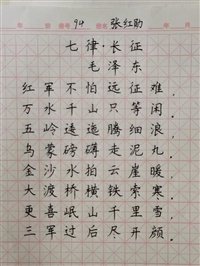 94 张红励
七律·长征
毛泽东
红军不怕远征难,
万水千山只等闲.
五岭逶迤腾细浪,
乌蒙磅礴走泥丸.
金沙水拍云崖暖,
大渡桥横铁索寒.
更喜岷山千里雪,
三军过后尽开颜.